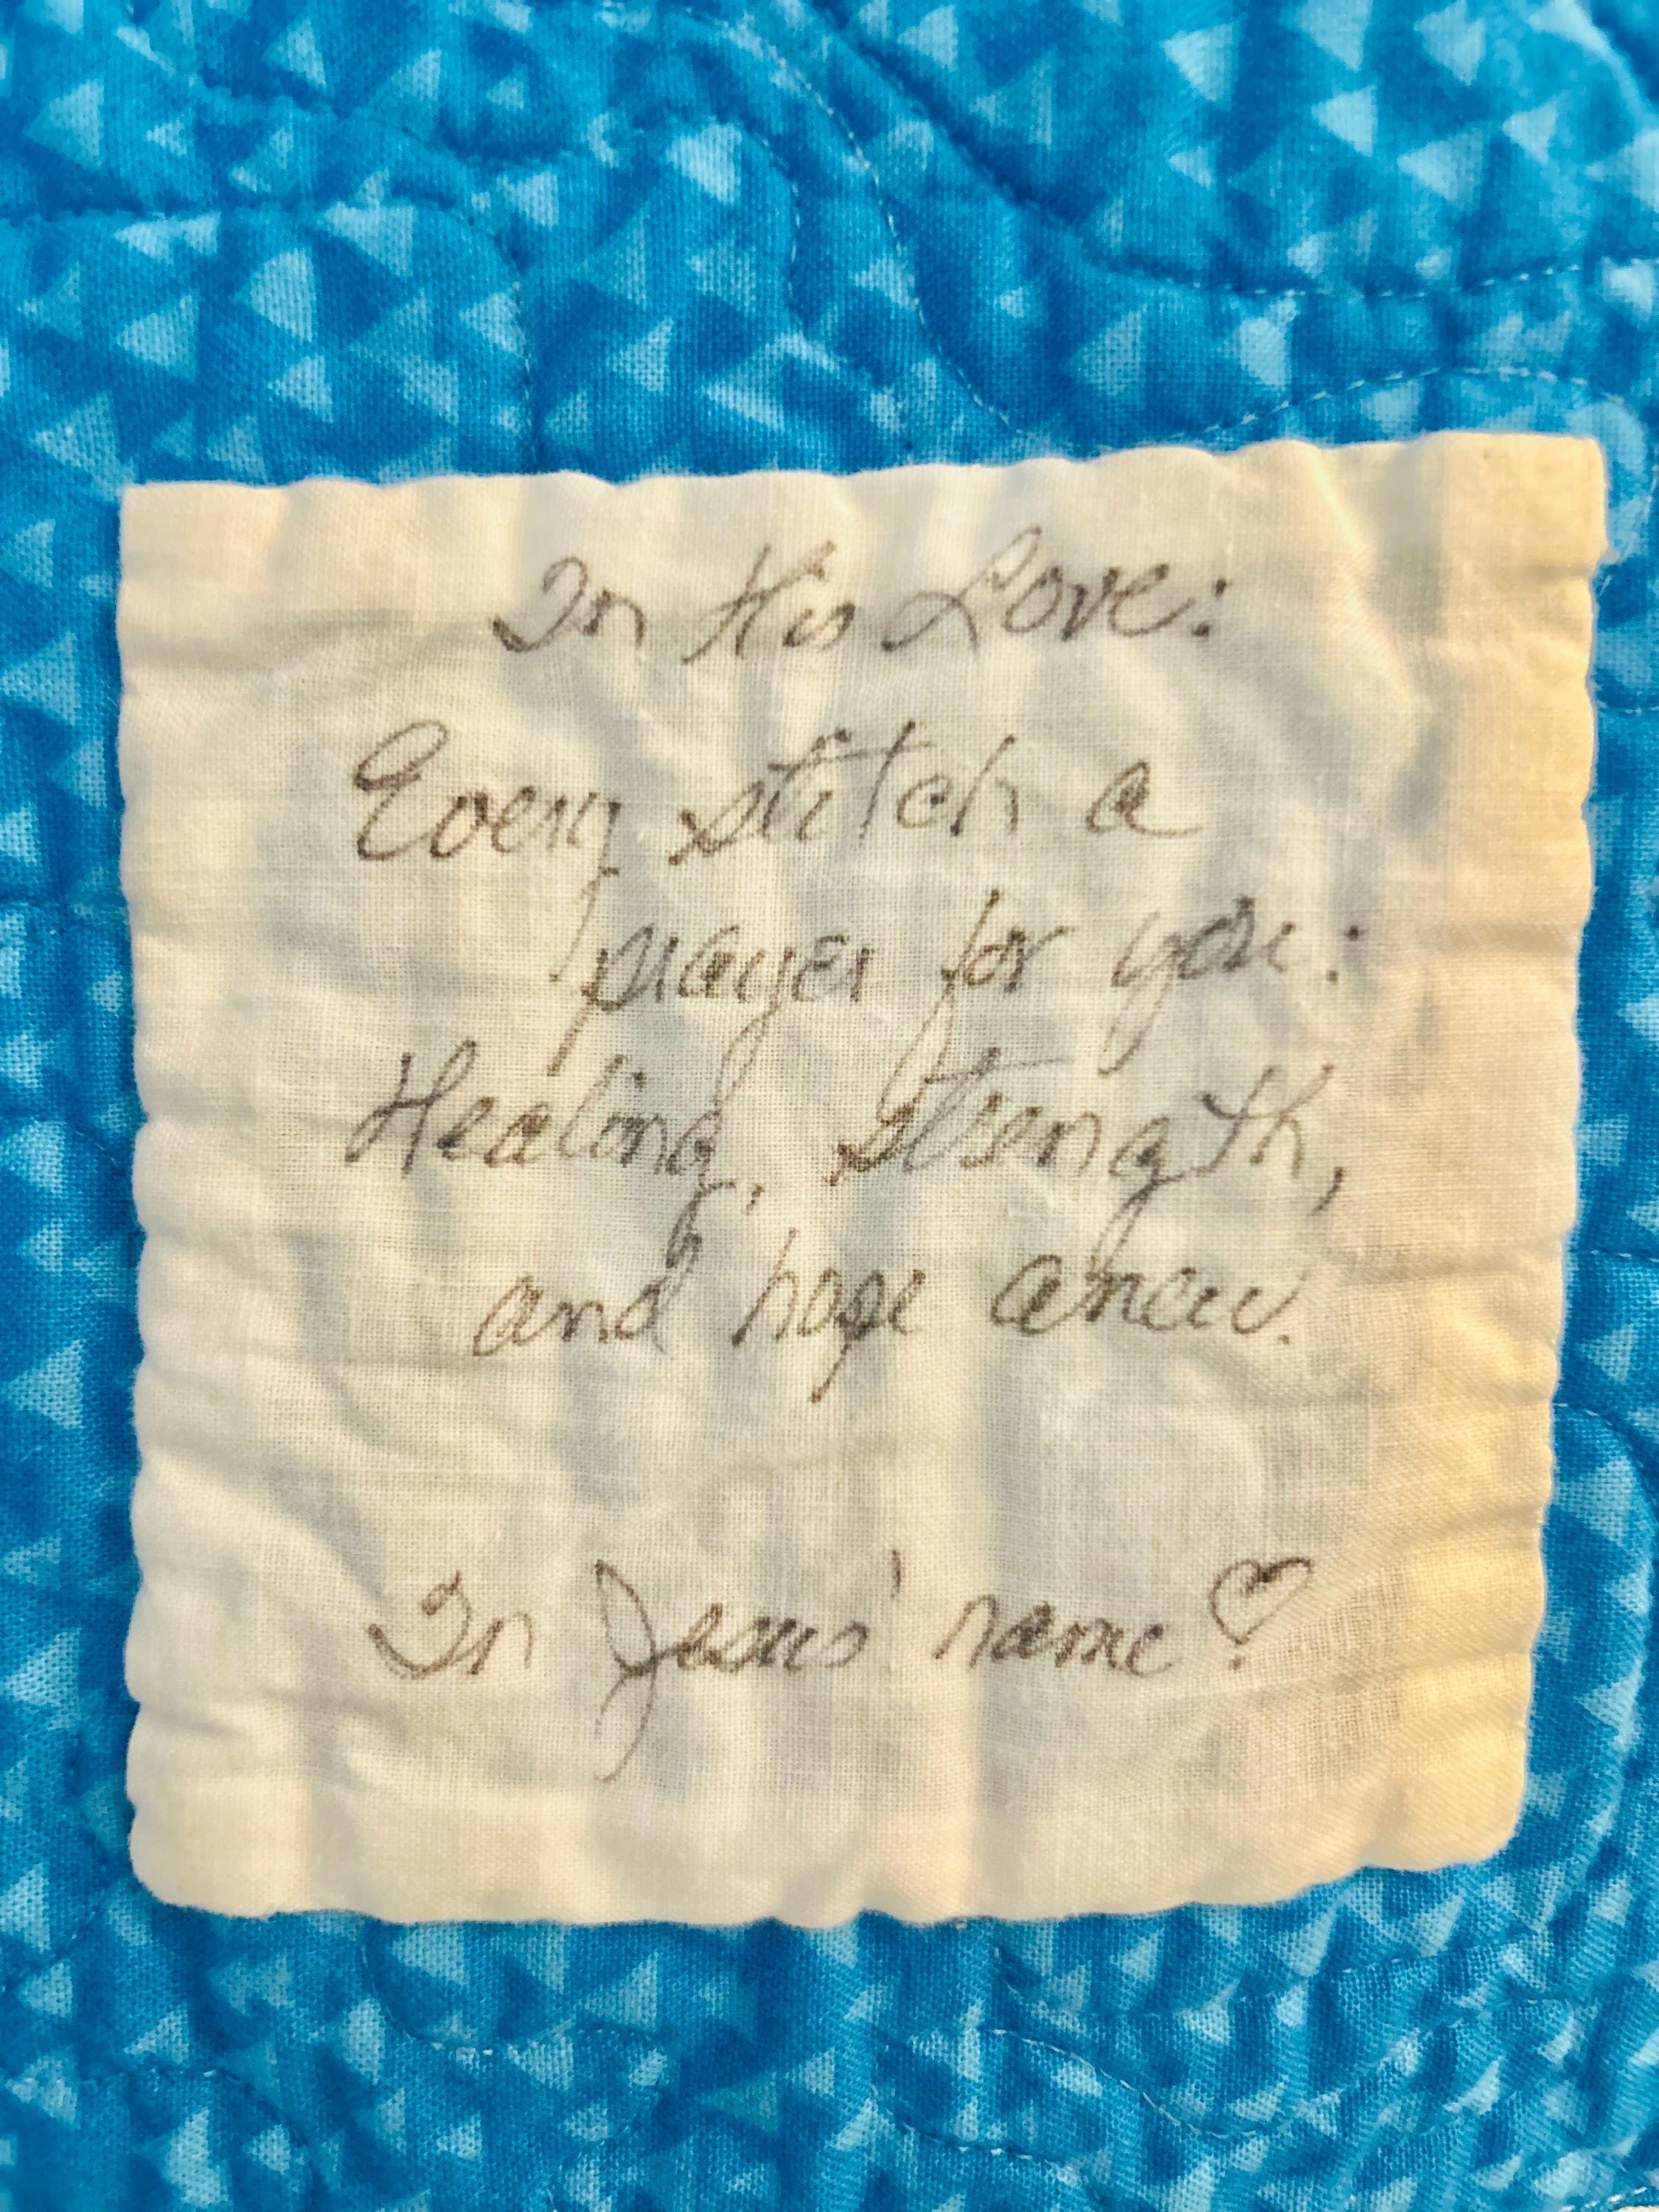 In His Love:
Every stitch a
prayer for you:
Healing, strength,
and hope anew.
In Jesus' name ♡